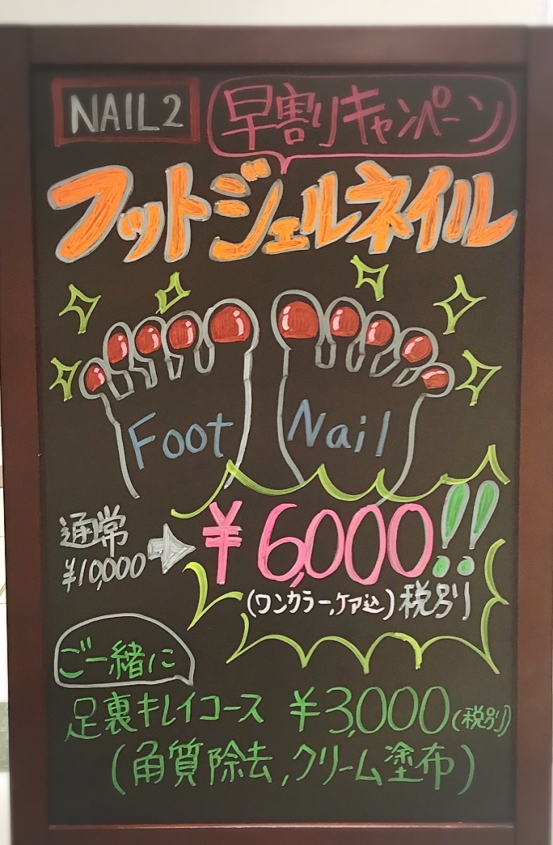 NAIL2 早割りキャンペーン
フットジェルネイル
Foot Nail
通常
¥10,000
¥6,000!!
(ワンカラー,ケア込)税別
ご一緒に
足裏キレイコース ¥3,000(税別)
(角質除去,クリーム塗布)